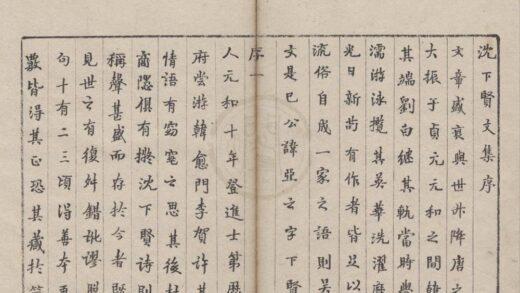 沈下賢文集序
文章盛衰與世升降唐之
大振于貞元元和之間韓
其端劉白继其軌當時學
濡游泳攬其英華洗濯磨
光日新苟有作者皆足以
流俗自成一家之語則吳
文是已公諱亞之字下賢
序一
人元和十年登進士第歷
府嘗游韓愈門李賀許其
情語有窈窕之思其後杜
商隱俱有擬沈下賢詩則
稱聲甚盛而存於今者既
見世之有復舛錯訛謬脫
句十有二三頃得善本再
數皆得其正恐其藏於